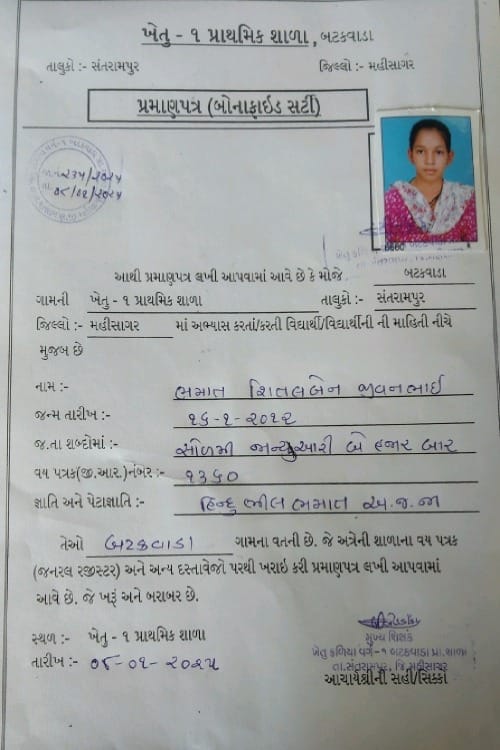 ખેતુ - ૧ પ્રાથમિક શાળા, બટકવાડા
તાલુકો :- સંતરામપુર જિલ્લો :- મહીસાગર
પ્રમાણપત્ર (બોનાફાઇડ સર્ટી)
આથી પ્રમાણપત્ર લખી આપવામાં આવે છે કે મોજે બટકવાડા
ગામની ખેતુ - ૧ પ્રાથમિક શાળા તાલુકો :- સંતરામપુર
જિલ્લો :- મહીસાગર માં અભ્યાસ કરતાં/કરતી વિદ્યાર્થી/વિદ્યાર્થીની ની માહિતી નીચે
મુજબ છે
નામ :- ભમાત શિતલબેન જીવનભાઈ
જન્મ તારીખ :- ૧૬-૧-૨૦૧૨
જ.તા શબ્દોમાં :- સોળમી જાન્યુઆરી બે હજાર બાર
વય પત્રક(જી.આર.)નંબર :- ૧૩૬૦
જ્ઞાતિ અને પેટાજ્ઞાતિ :- હિન્દુ ભીલ ભમાત અ.જ.જા
તેઓ બટકવાડા ગામના વતની છે. જે અત્રેની શાળાના વય પત્રક
(જનરલ રજીસ્ટર) અને અન્ય દસ્તાવેજો પરથી ખરાઇ કરી પ્રમાણપત્ર લખી આપવામાં
આવે છે. જે ખરૂં અને બરાબર છે.
સ્થળ :- ખેતુ - ૧ પ્રાથમિક શાળા
તારીખ :- ૦૮-૦૧-૨૦૨૫
મુખ્ય શિક્ષક
ખેતુ કળિયા વર્ગ-૧ બટકવાડા પ્રા.શાળા
તા.સંતરામપુર, જિ.મહીસાગર
આચાર્યશ્રીની સહી/સિક્કો